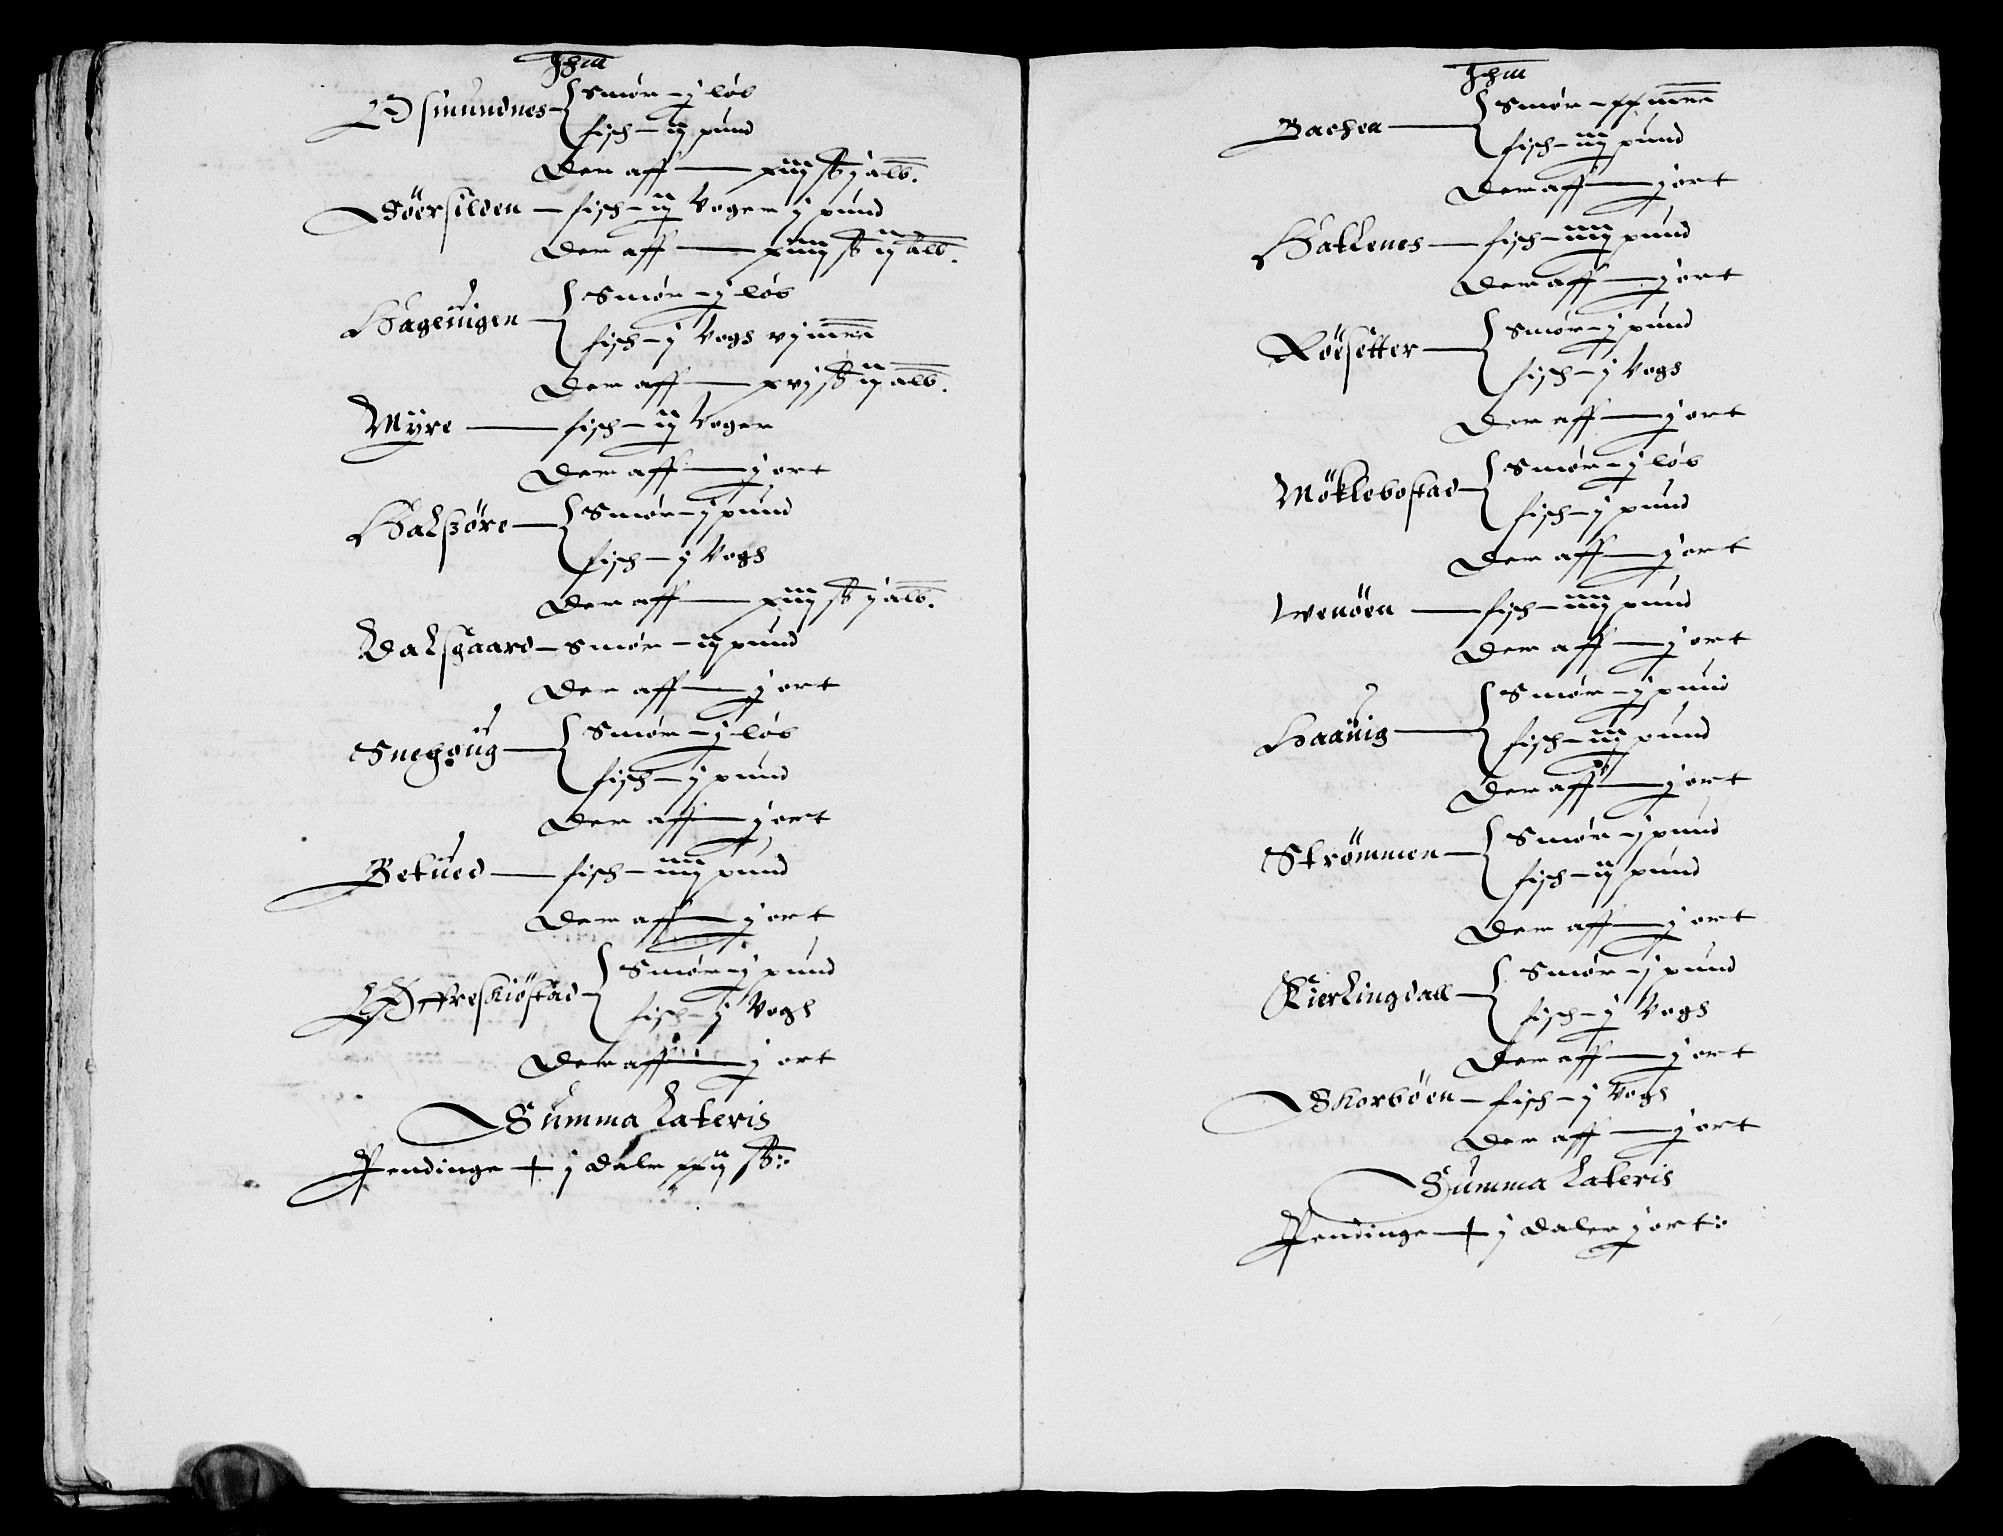 Jhm
Osmundnes Smør - j løb
fisch - ij pund
Der aff - xiij ß j alb.
Söersilden - fisch - ij Voger j pund
Der aff - xiiij ß ij alb.
Hageuigen Smør - j løb
fisch - j Vogh vj mrc
Der aff - xvj ß ij alb.
Myre - fisch - ij Voger
Der aff - j ort
Halsöre Smør - j pund
fisch - j Vogh
Der aff - xiij ß j alb.
Dalsgaard - Smør - ij pund
Der aff - j ort
Snehoug Smør - j løb
fisch - j pund
Der aff - j ort
Betued - fisch - iiij pund
Der aff - j ort
Smør - j pund
fisch - j Vogh
Der aff - j ort
Summa Lateris
Pendinge + j daler xxij ß:
Jhm
Bachen Smør - xx mrc
fisch - iij pund
Der aff - j ort
Hatlenes - fisch - iiij pund
Der aff - j ort
Röesetter Smør - j pund
fisch - j Vogh
Der aff - j ort
Möklebostad Smør - j løb
fisch - j pund
Der aff - j ort
Wenöen - fisch - iiij pund
Der aff - j ort
Haauig Smør - j pund
fisch - iij pund
Der aff - j ort
Strömmen Smør - j pund
fisch - ij pund
Der aff - j ort
Kierlingdall Smør - j pund
fisch - j Vogh
Der aff - j ort
Skorböen - fisch - j Vogh
Der aff - j ort
Summa Lateris
Pendinge + j daler j ort: